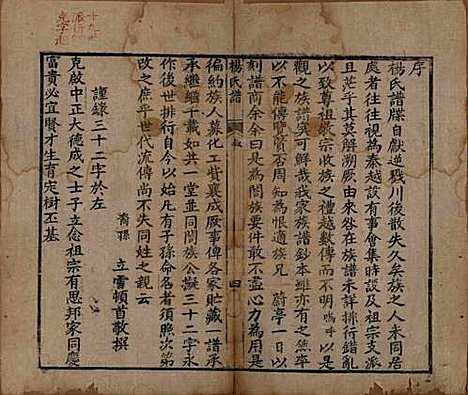 序
楊氏譜牒自獻逆戕川後散失久矣族之人未同居
處者往往視為秦越談有事會集時談及宗支派
且茫乎其莫解溯厥由來咎在族譜未詳排行錯亂
以致尊祖敬宗收族之禮越數傳而不明嗚呼以
觀之族譜莫可鮮哉我家族譜鈔本鮮亦有之焦卒
以不能傳覽贊否周知為恨適族兄蔚亭一日以
刻譜商余余曰是為闔族要件敢不盡心力為用是
徧約族人募化工貲襄成厥事俾各家貯藏一譜承
承繼繼千載如一堂並同闔族公議三十二字永
遠排行自今以始凡有子孫命名者須照次第
改之庶乎世代流傳尚不失同姓之親云
裔孫 立雷頓首敬撰
謹錄三十二字於左
克啟中正大德成之士子立念祖宗有思邦家同慶
富貴必宜賢才生育定樹丕基
楊氏譜
序
四